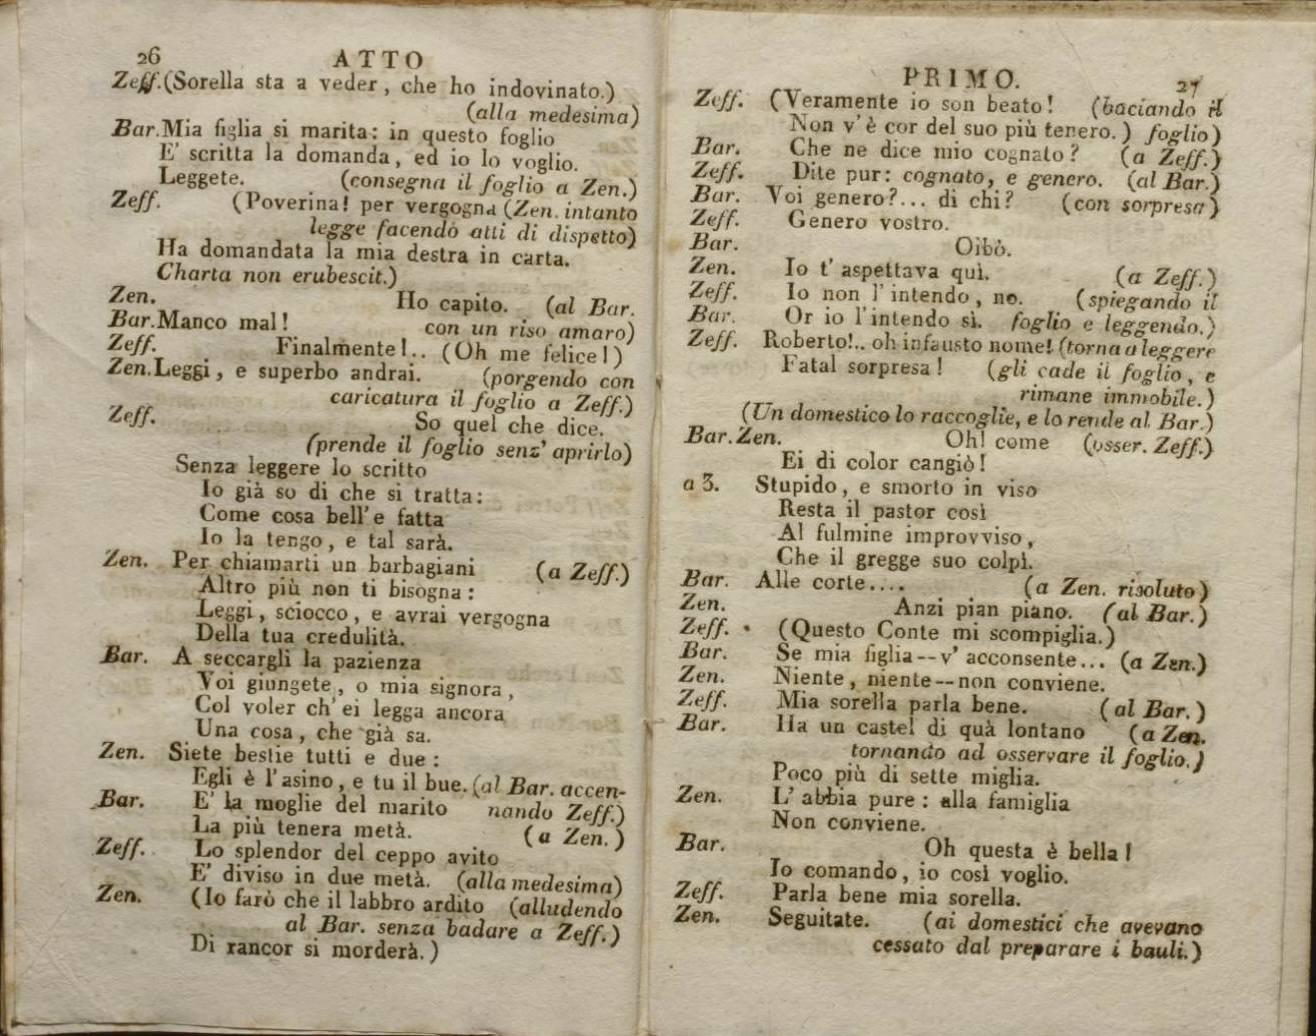 26 ATTO
Zeff. (Sorella sta a veder, che ho indovinato.)
(alla medesima)
Bar. Mia figlia si marita: in questo foglio
E' scritta la domanda, ed io lo voglio.
Leggete. (consegna il foglio a Zen.)
Zeff. (Poverina! per vergogna (Zen. intanto
legge facendo atti di dispetto)
Ha domandata la mia destra in carta.
Charta non erubescit.)
Zen. Ho capito. (al Bar.
Bar. Manco mal! con un riso amaro)
Zeff. Finalmente!.. (Oh me felice!)
Zen. Leggi, e superbo andrai. (porgendo con
caricatura il foglio a Zeff.)
Zeff. So quel che dice.
(prende il foglio senz' aprirlo)
Senza leggere lo scritto
Io già so di che si tratta:
Come cosa bell' e fatta
Io la tengo, e tal sarà.
Zen. Per chiamarti un barbagiani (a Zeff.)
Altro più non ti bisogna:
Leggi, sciocco, e avrai vergogna
Della tua credulità.
Bar. A seccargli la pazienza
Voi giungete, o mia signora,
Col voler ch' ei legga ancora
Una cosa, che già sa.
Zen. Siete bestie tutti e due:
Egli è l'asino, e tu il bue. (al Bar. accen-
Bar. E' la moglie del marito nando Zeff.)
La più tenera metà. (a Zen.)
Zeff. Lo splendor del ceppo avito
E' diviso in due metà. (alla medesima)
Zen. (Io farò che il labbro ardito (alludendo
al Bar. senza badare a Zeff.)
Di rancor si morderà.)
PRIMO. 27
Zeff. (Veramente io son beato! (baciando il
Non v'è cor del suo più tenero.) foglio)
Bar. Che ne dice mio cognato? (a Zeff.)
Zeff. Dite pur: cognato, e genero. (al Bar.)
Bar. Voi genero?... di chi? (con sorpresa)
Zeff. Genero vostro.
Bar. Oibò.
Zen. Io t' aspettava quì. (a Zeff.)
Zeff. Io non l' intendo, no. (spiegando il
Bar. Or io l'intendo sì. foglio e leggendo.)
Zeff. Roberto!.. oh infausto nome! (torna a leggere
Fatal sorpresa! (gli cade il foglio, e
rimane immobile.)
(Un domestico lo raccoglie, e lo rende al Bar.)
Bar. Zen. Oh! come (osser. Zeff.)
Ei di color cangiò!
a 3. Stupido, e smorto in viso
Resta il pastor così
Al fulmine improvviso,
Che il gregge suo colpì.
Bar. Alle corte.... (a Zen. risoluto)
Zen. Anzi pian piano. (al Bar.)
Zeff. (Questo Conte mi scompiglia.)
Bar. Se mia figlia -- v' acconsente... (a Zen.)
Zen. Niente, niente -- non conviene.
Zeff. Mia sorella parla bene. (al Bar.)
Bar. Ha un castel di quà lontano (a Zen.
tornando ad osservare il foglio.)
Poco più di sette miglia.
Zen. L' abbia pure: alla famiglia
Non conviene.
Bar. Oh questa è bella!
Io comando, io così voglio.
Zeff. Parla bene mia sorella.
Zen. Seguitate. (ai domestici che avevano
cessato dal preparare i bauli.)